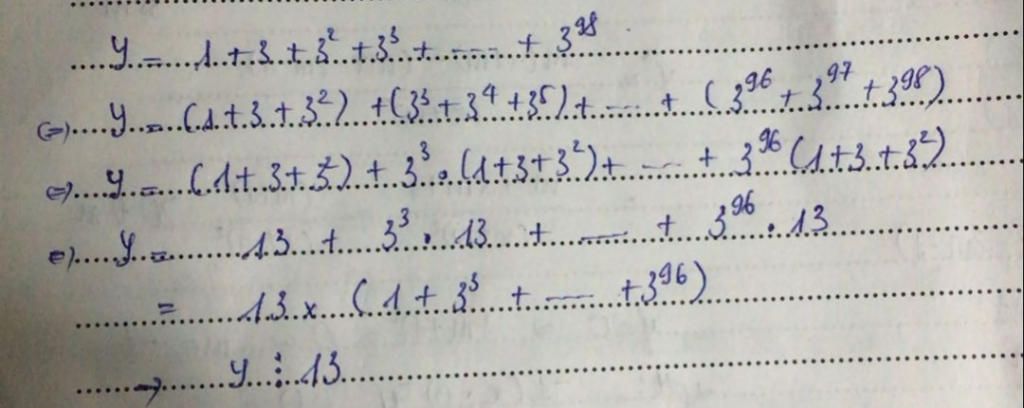 y = 1 + 3 + 3² + 3³ + --- + 3⁹⁸
(=) y = (1 + 3 + 3²) + (3³ + 3⁴ + 3⁵) + --- + (3⁹⁶ + 3⁹⁷ + 3⁹⁸)
(=) y = (1 + 3 + 3²) + 3³ . (1 + 3 + 3²) + --- + 3⁹⁶ (1 + 3 + 3²)
(=) y = 13 + 3³ . 13 + --- + 3⁹⁶ . 13
= 13 x (1 + 3³ + --- + 3⁹⁶)
→ y ⋮ 13